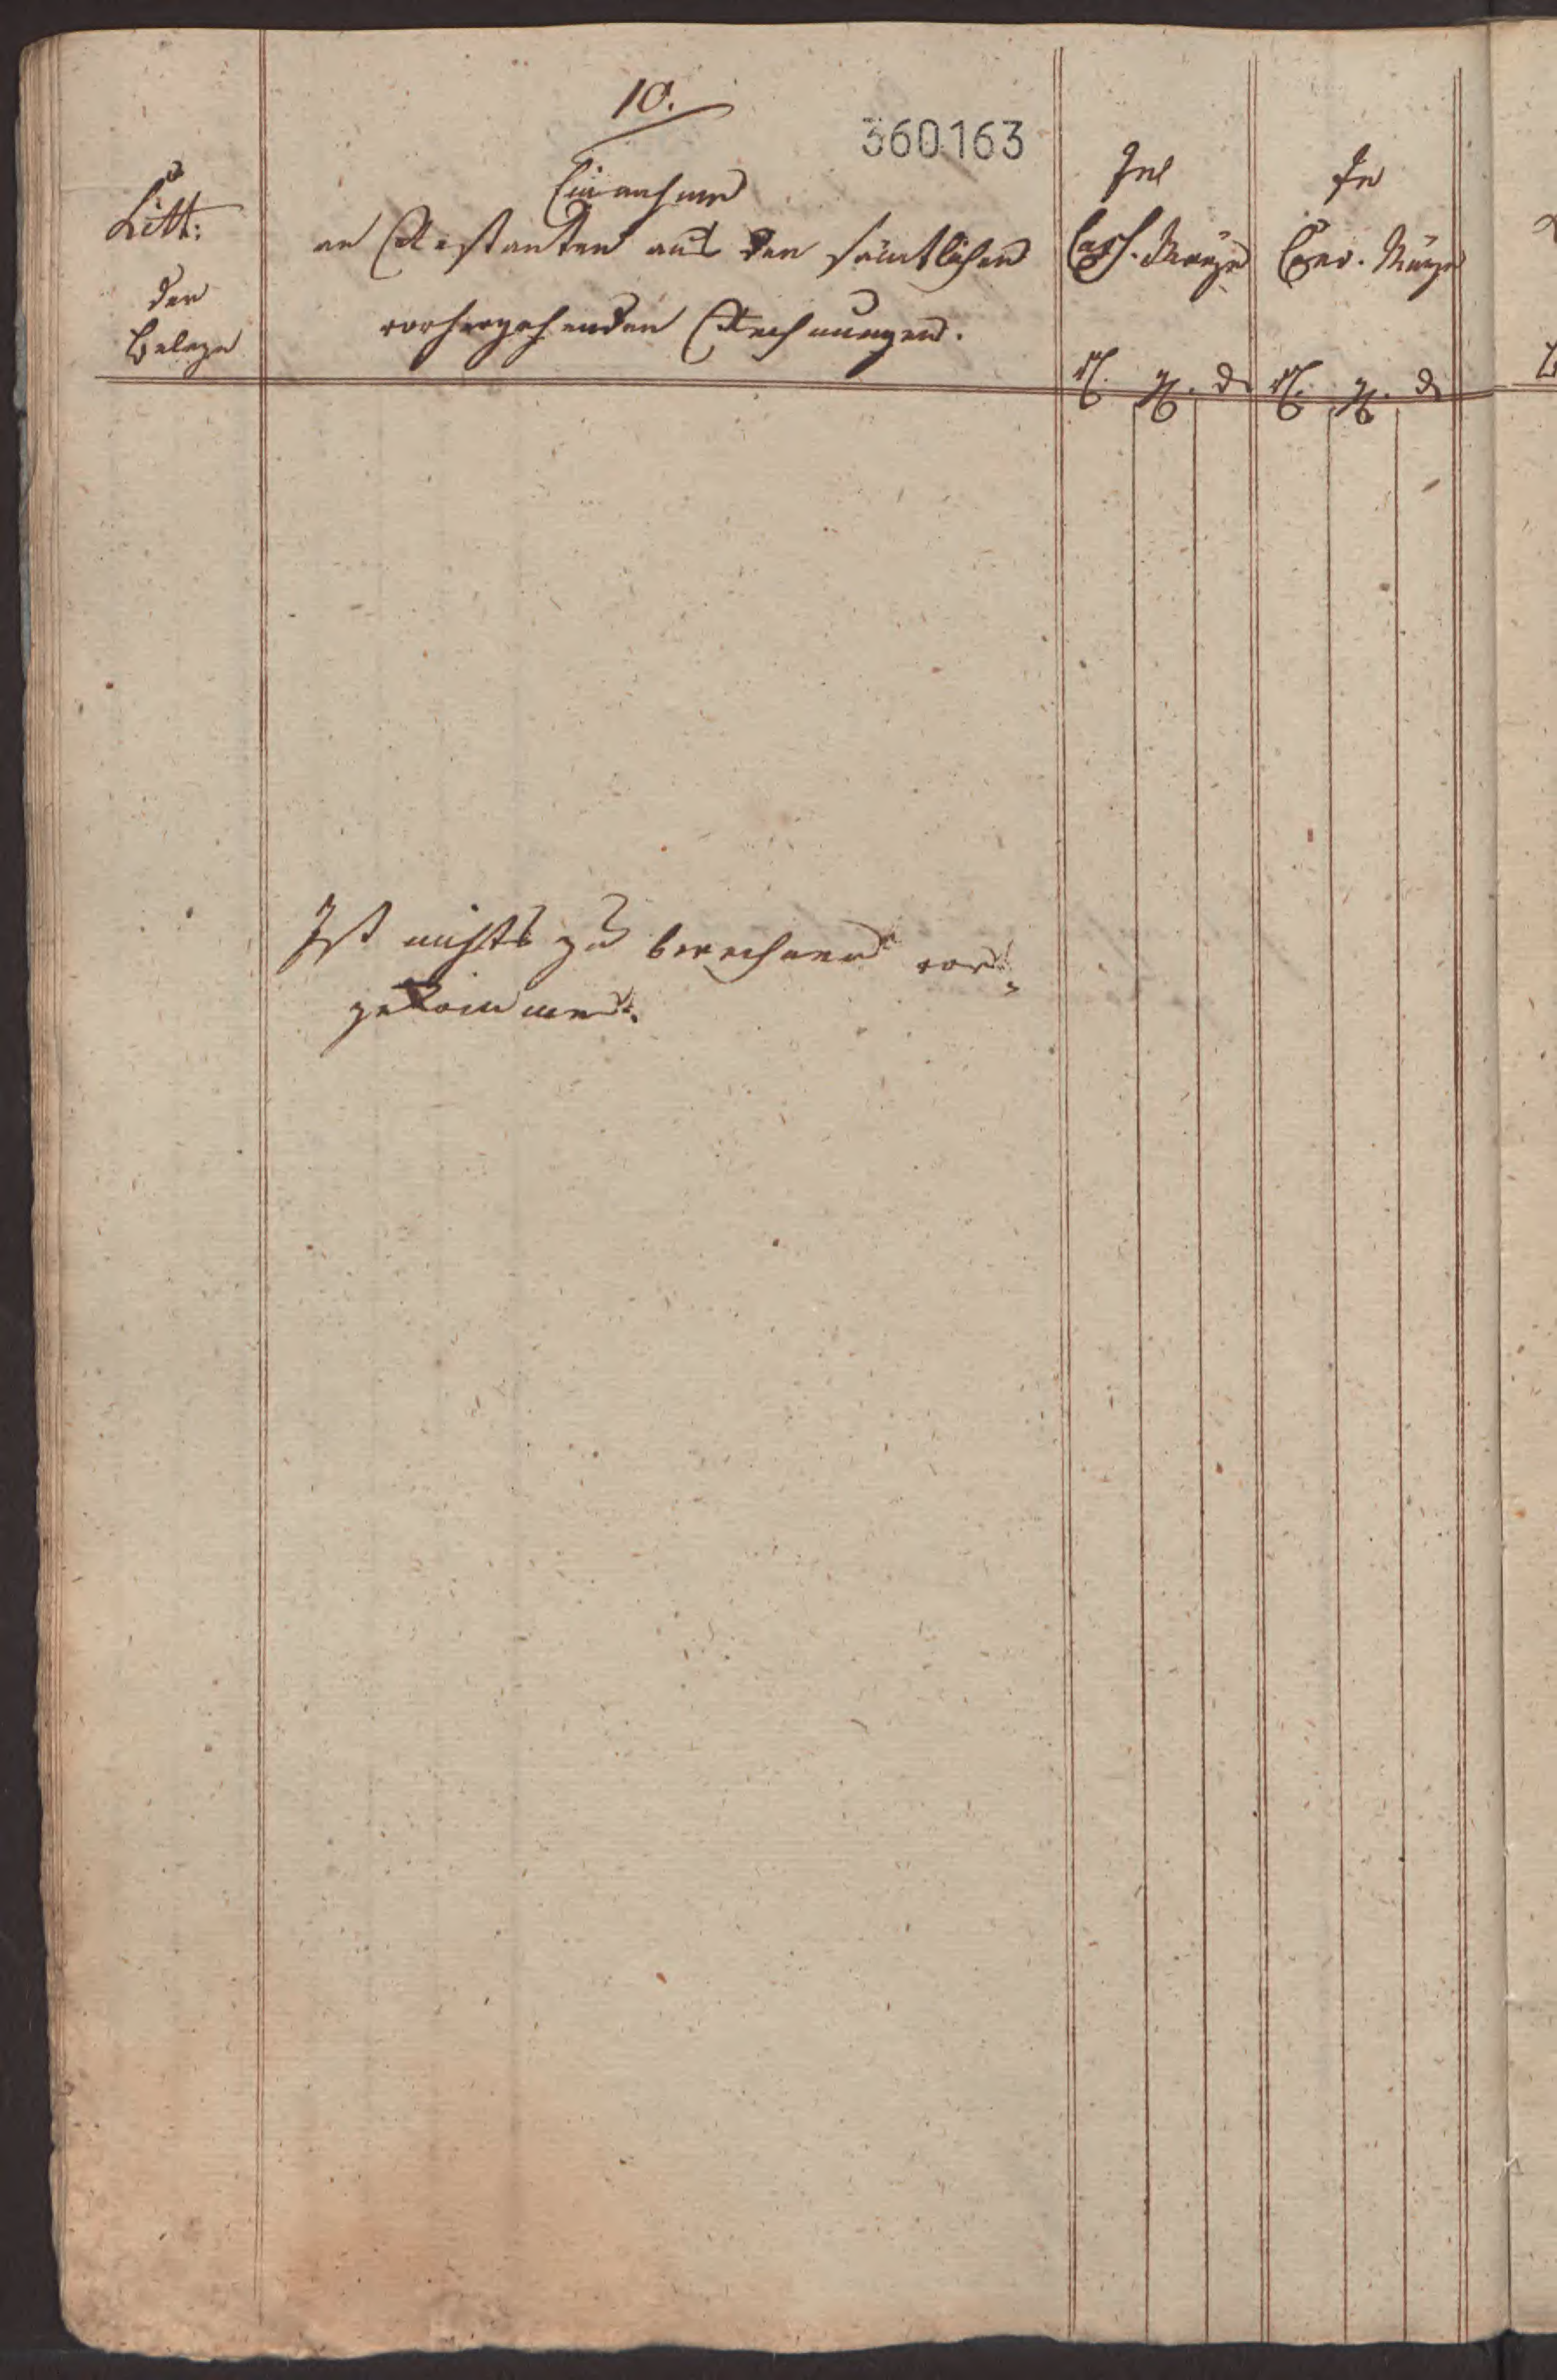 10.
360163
Litt:
der
Belege
Einnahme
an Restanten aus den sämtlichen
vorhergehenden Rechnungen.
In
Cass. Münze
In
Conv. Münze
rl. gl. d rl. gl. d
Ist nichts zu berechnen vor-
gekommen.